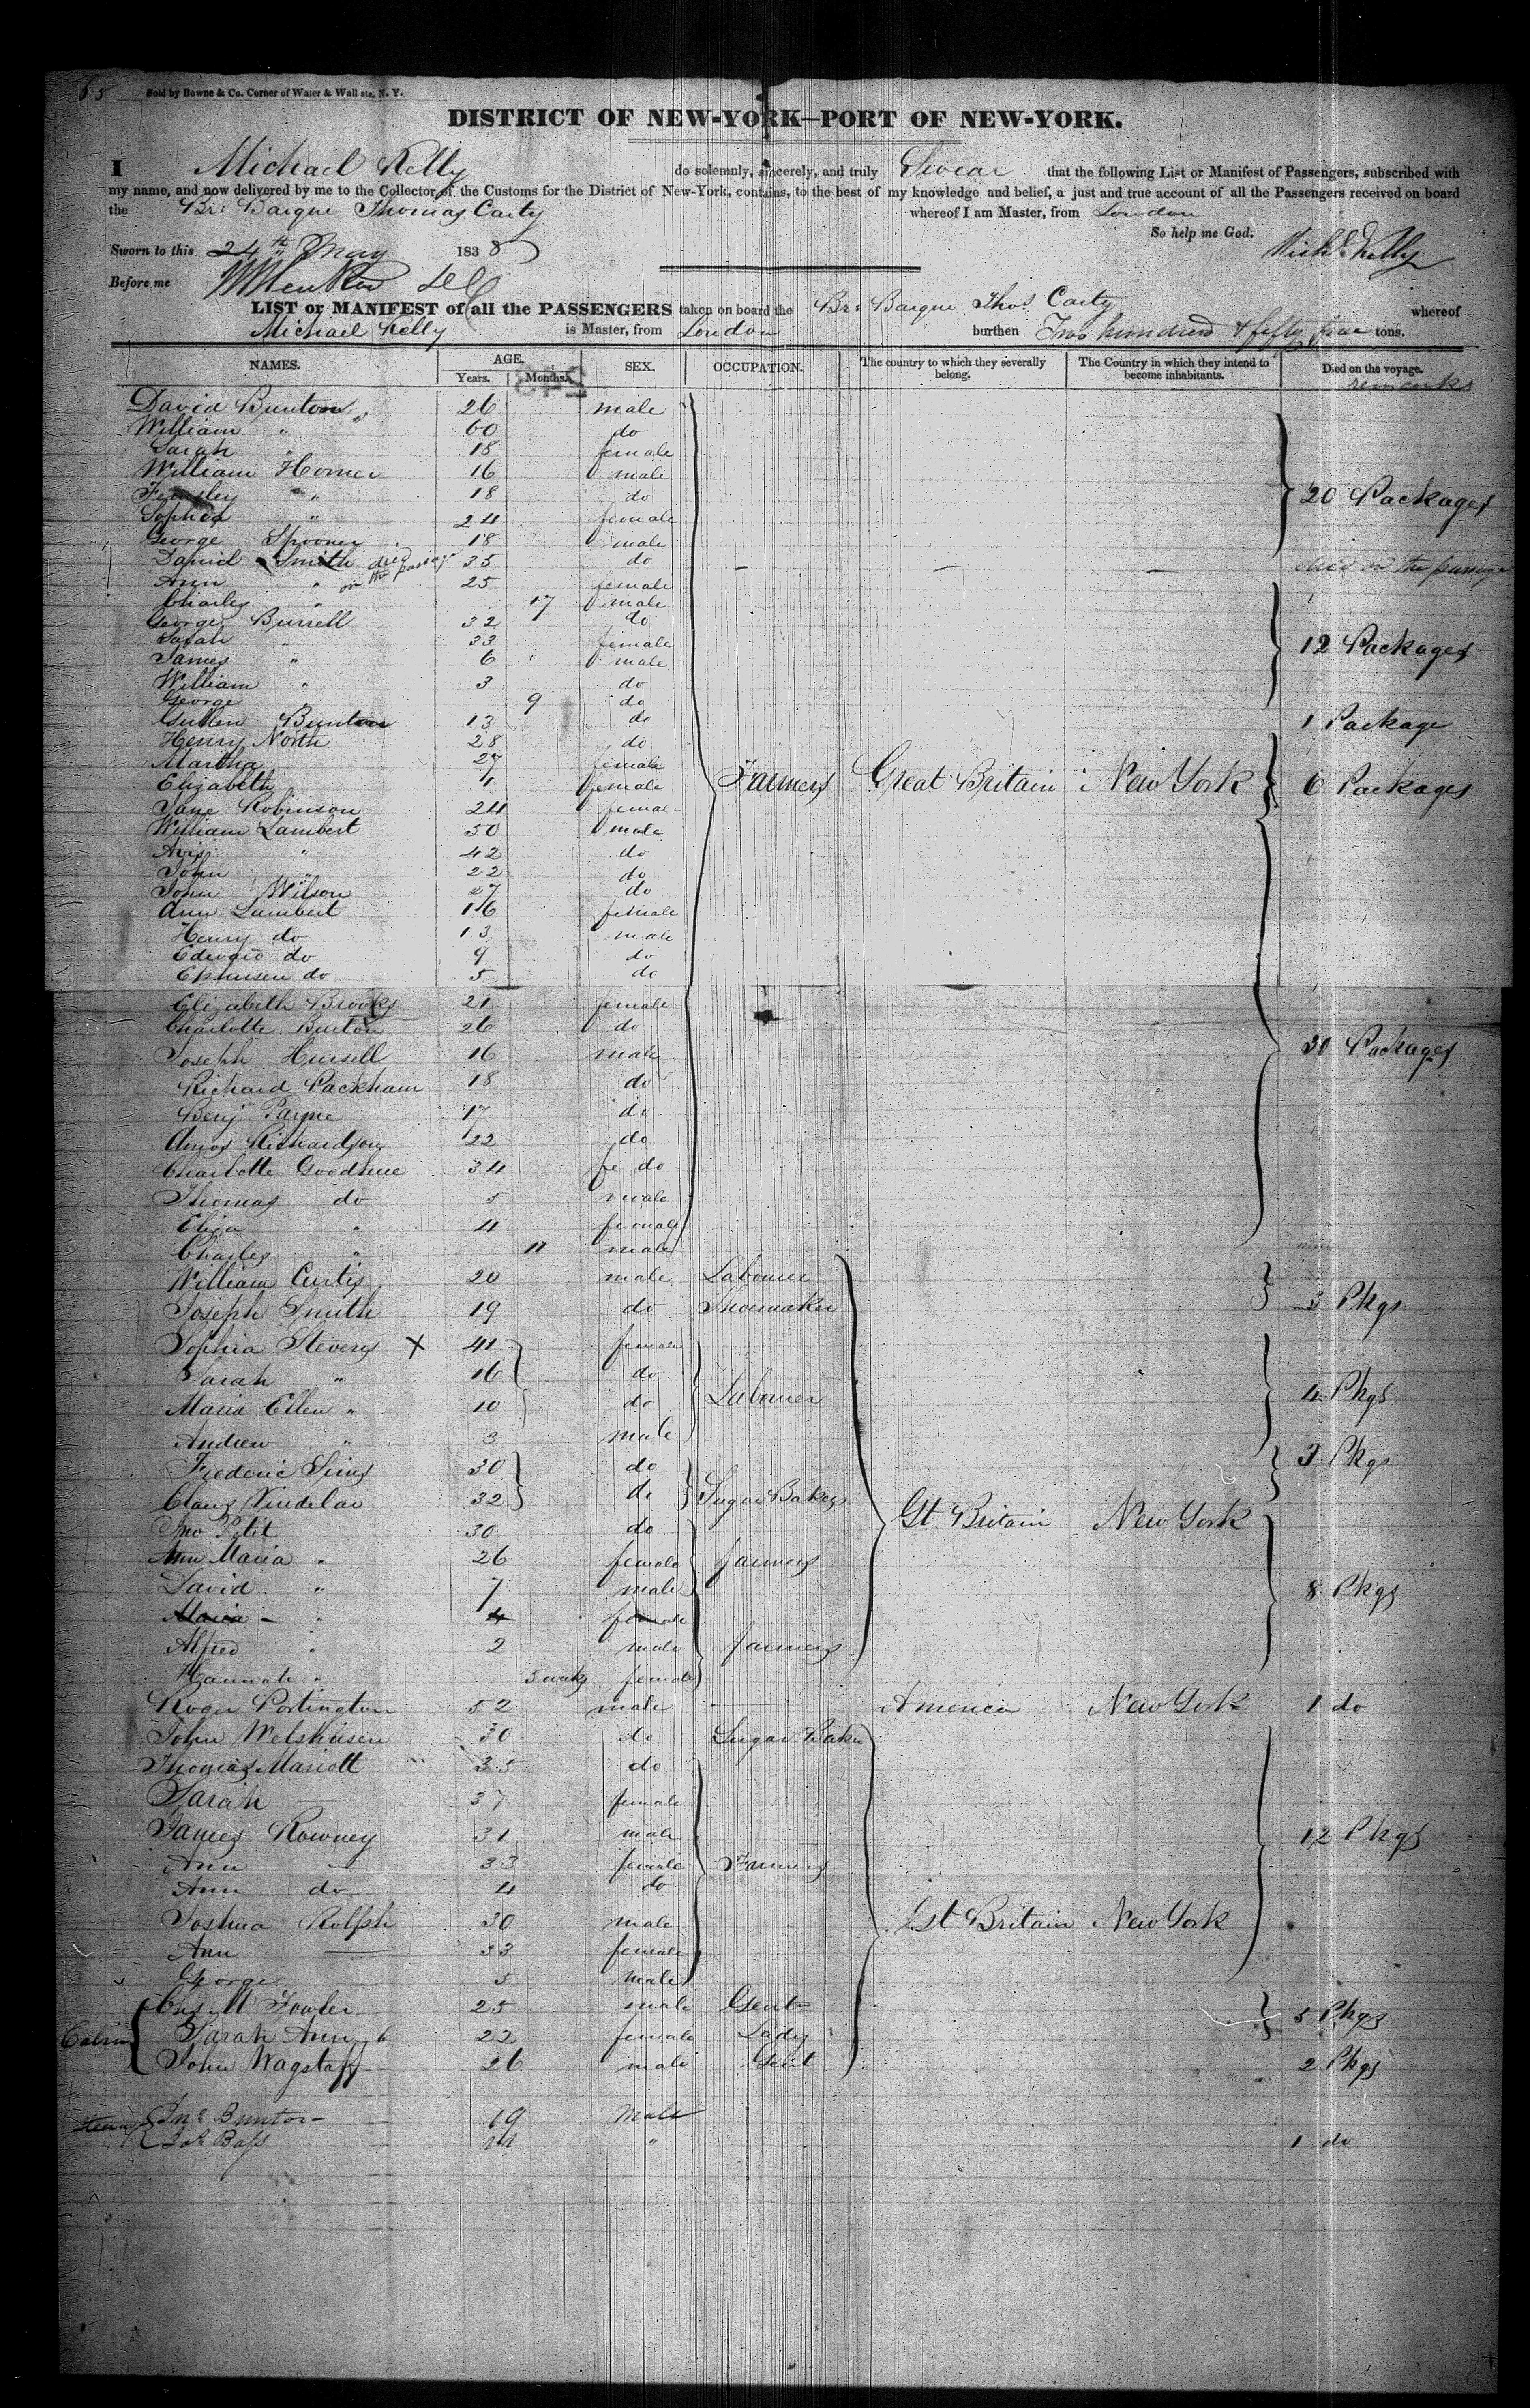 65 Sold by Bowne & Co. Corner of Water & Wall sts. N. Y.
DISTRICT OF NEW-YORK—PORT OF NEW-YORK.
I Michael Kelly do solemnly, sincerely, and truly Swear that the following List or Manifest of Passengers, subscribed with
my name, and now delivered by me to the Collector of the Customs for the District of New-York, contains, to the best of my knowledge and belief, a just and true account of all the Passengers received on board
the Br: Barque Thomas Carty whereof I am Master, from London
So help me God.
Sworn to this 24th May 1838 Mich Kelly
Before me
LIST or MANIFEST of all the PASSENGERS taken on board the Br: Barque Thos. Carty whereof
Michael Kelly is Master, from London burthen Two hundred & fifty four tons.
NAMES. AGE. SEX. OCCUPATION. The country to which they severally belong. The Country in which they intend to become inhabitants. Died on the voyage.
Years. Months. remarks
David Bunton 26 male
William " 60 do
Sarah " 18 female
William Homer 16 male
" 18 do
Sophia " 24 female 20 Packages
George Spooner 18 male
Daniel Smith died on the passage 35 do died on the passage
Ann " 25 female
Charles " 17 male
George Burrell 32 do
Sarah " 33 female
James " 6 male 12 Packages
William " 3 do
George 9 do
Bunton 13 do 1 Package
Henry North 28 do
Martha 27 female
Elizabeth 1 female Farmers Great Britain New York 6 Packages
Jane Robinson 24 female
William Lambert 50 male
Avis " 42 do
John " 22 do
John Wilson 27 do
Ann Lambert 16 female
Henry do 13 male
Edward do 9 do
do 5 do
Elizabeth Brooks 21 female
Charlotte Burton 26 do
Joseph Hursell 16 male 30 Packages
Richard Packham 18 do
Benj Payne 17 do
Amos Richardson 22 do
Charlotte Goodhue 34 fe do
Thomas do 5 male
Eliza " 4 female
Charles " 11 male
William Curtis 20 male Labourer
Joseph Smith 19 do Shoemaker 3 Pkgs
Sophia Stevens X 41 female
Sarah " 16 do
Maria Ellen " 10 do Labourer 4 Pkgs
Andrew " 3 male
Frederic Sims 30 do 3 Pkgs
Claus 32 do Sugar Bakers
Jno Petit 30 do Gt Britain New York
Ann Maria " 26 female farmers
David " 7 male 8 Pkgs
Maria " 4 female
Alfred " 2 male farmers
Hannah " 5 weeks female
Roger Portington 52 male America New York 1 do
John Welshusen 30 do Sugar Baker
Thomas Mariott 35 do
Sarah 37 female
James Rowney 31 male 12 Pkgs
Ann 33 female Farmers
Ann do 4 do
Joshua Rolfsh 30 male Gt Britain New York
Ann 33 female
George 5 male
Chs M Fowler 25 male Gent 5 Pkgs
Cabin Sarah Ann 22 female Lady
John Wagstaff 26 male Gent 2 Pkgs
Jno Bunton 19 male
Bass " 1 do